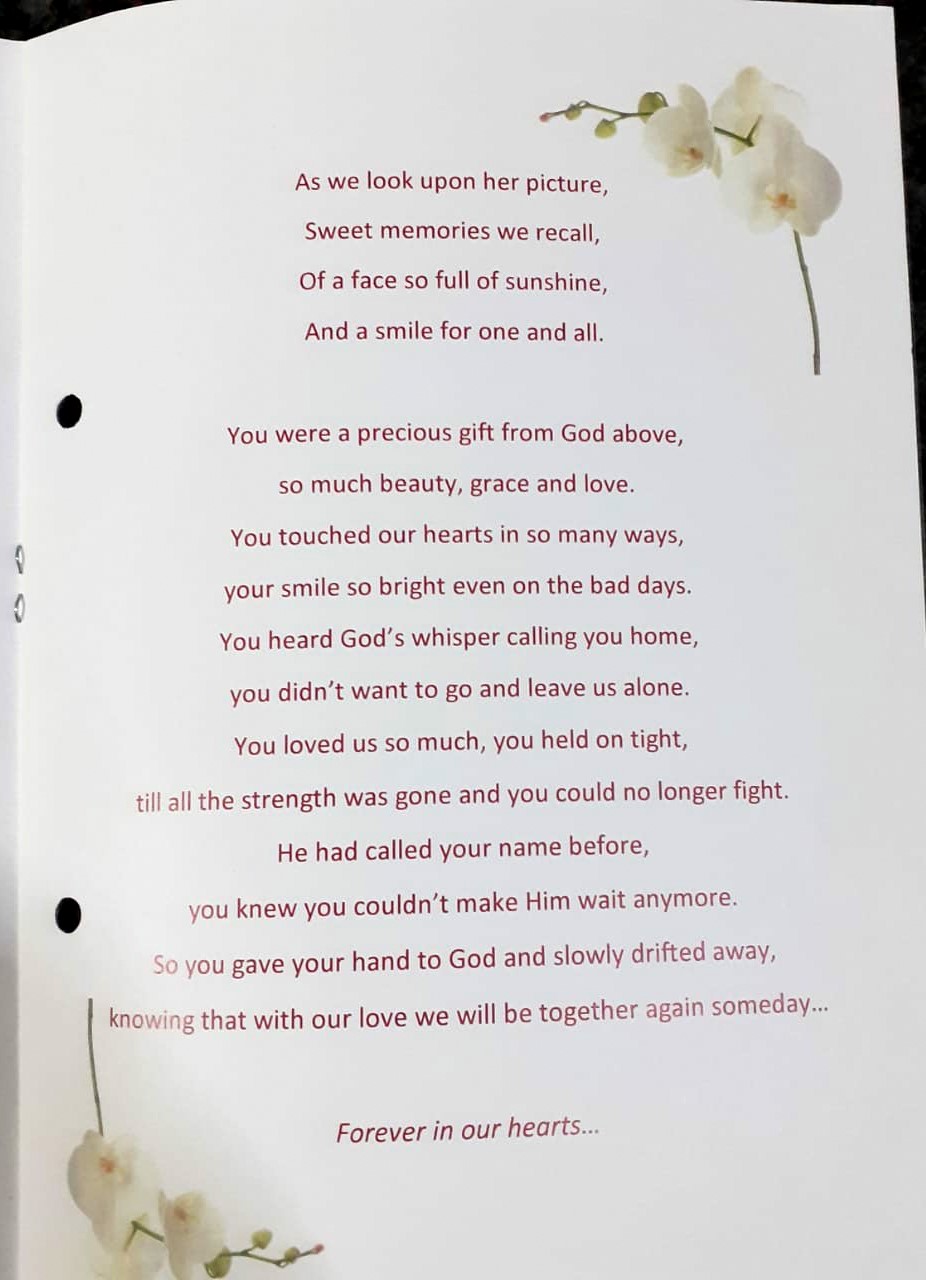 As we look upon her picture,
Sweet memories we recall,
Of a face so full of sunshine,
And a smile for one and all.
You were a precious gift from God above,
so much beauty, grace and love.
You touched our hearts in so many ways,
your smile so bright even on the bad days.
You heard God's whisper calling you home,
you didn't want to go and leave us alone.
You loved us so much, you held on tight,
till all the strength was gone and you could no longer fight.
He had called your name before,
you knew you couldn't make Him wait anymore.
So you gave your hand to God and slowly drifted away,
knowing that with our love we will be together again someday...
Forever in our hearts...